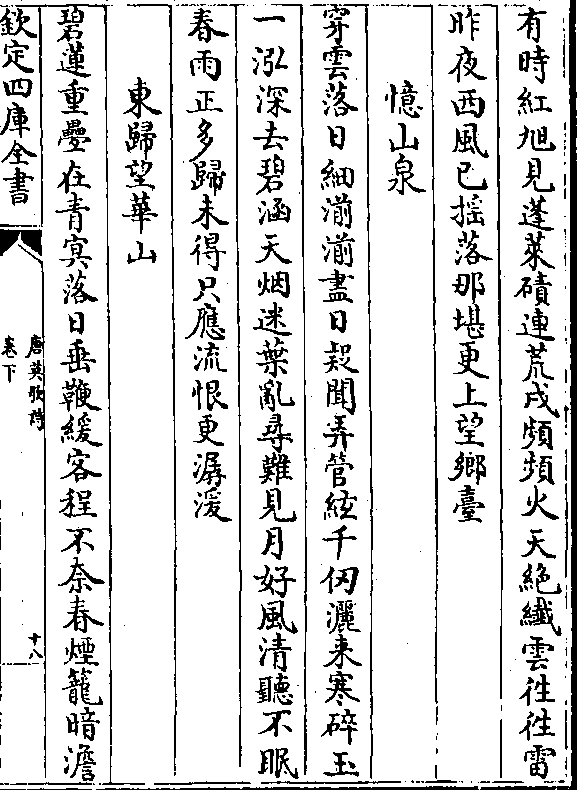 有時紅旭見蓬萊磧連荒戍頻頻火天絶纎雲往往雷
昨夜西風已揺落那堪更上望鄉臺
憶山泉
穿雲落日細湔湔盡日疑聞弄管絃千仞灑來寒碎玉
一泓深去碧涵天烟迷葉亂尋難見月好風清聽不眠
春雨正多歸未得只應流恨更潺湲
東歸望華山
碧蓮重疊在青冥落日垂鞭緩客程不奈春煙籠暗澹
欽定四庫全書
唐英歌詩
卷下
十八